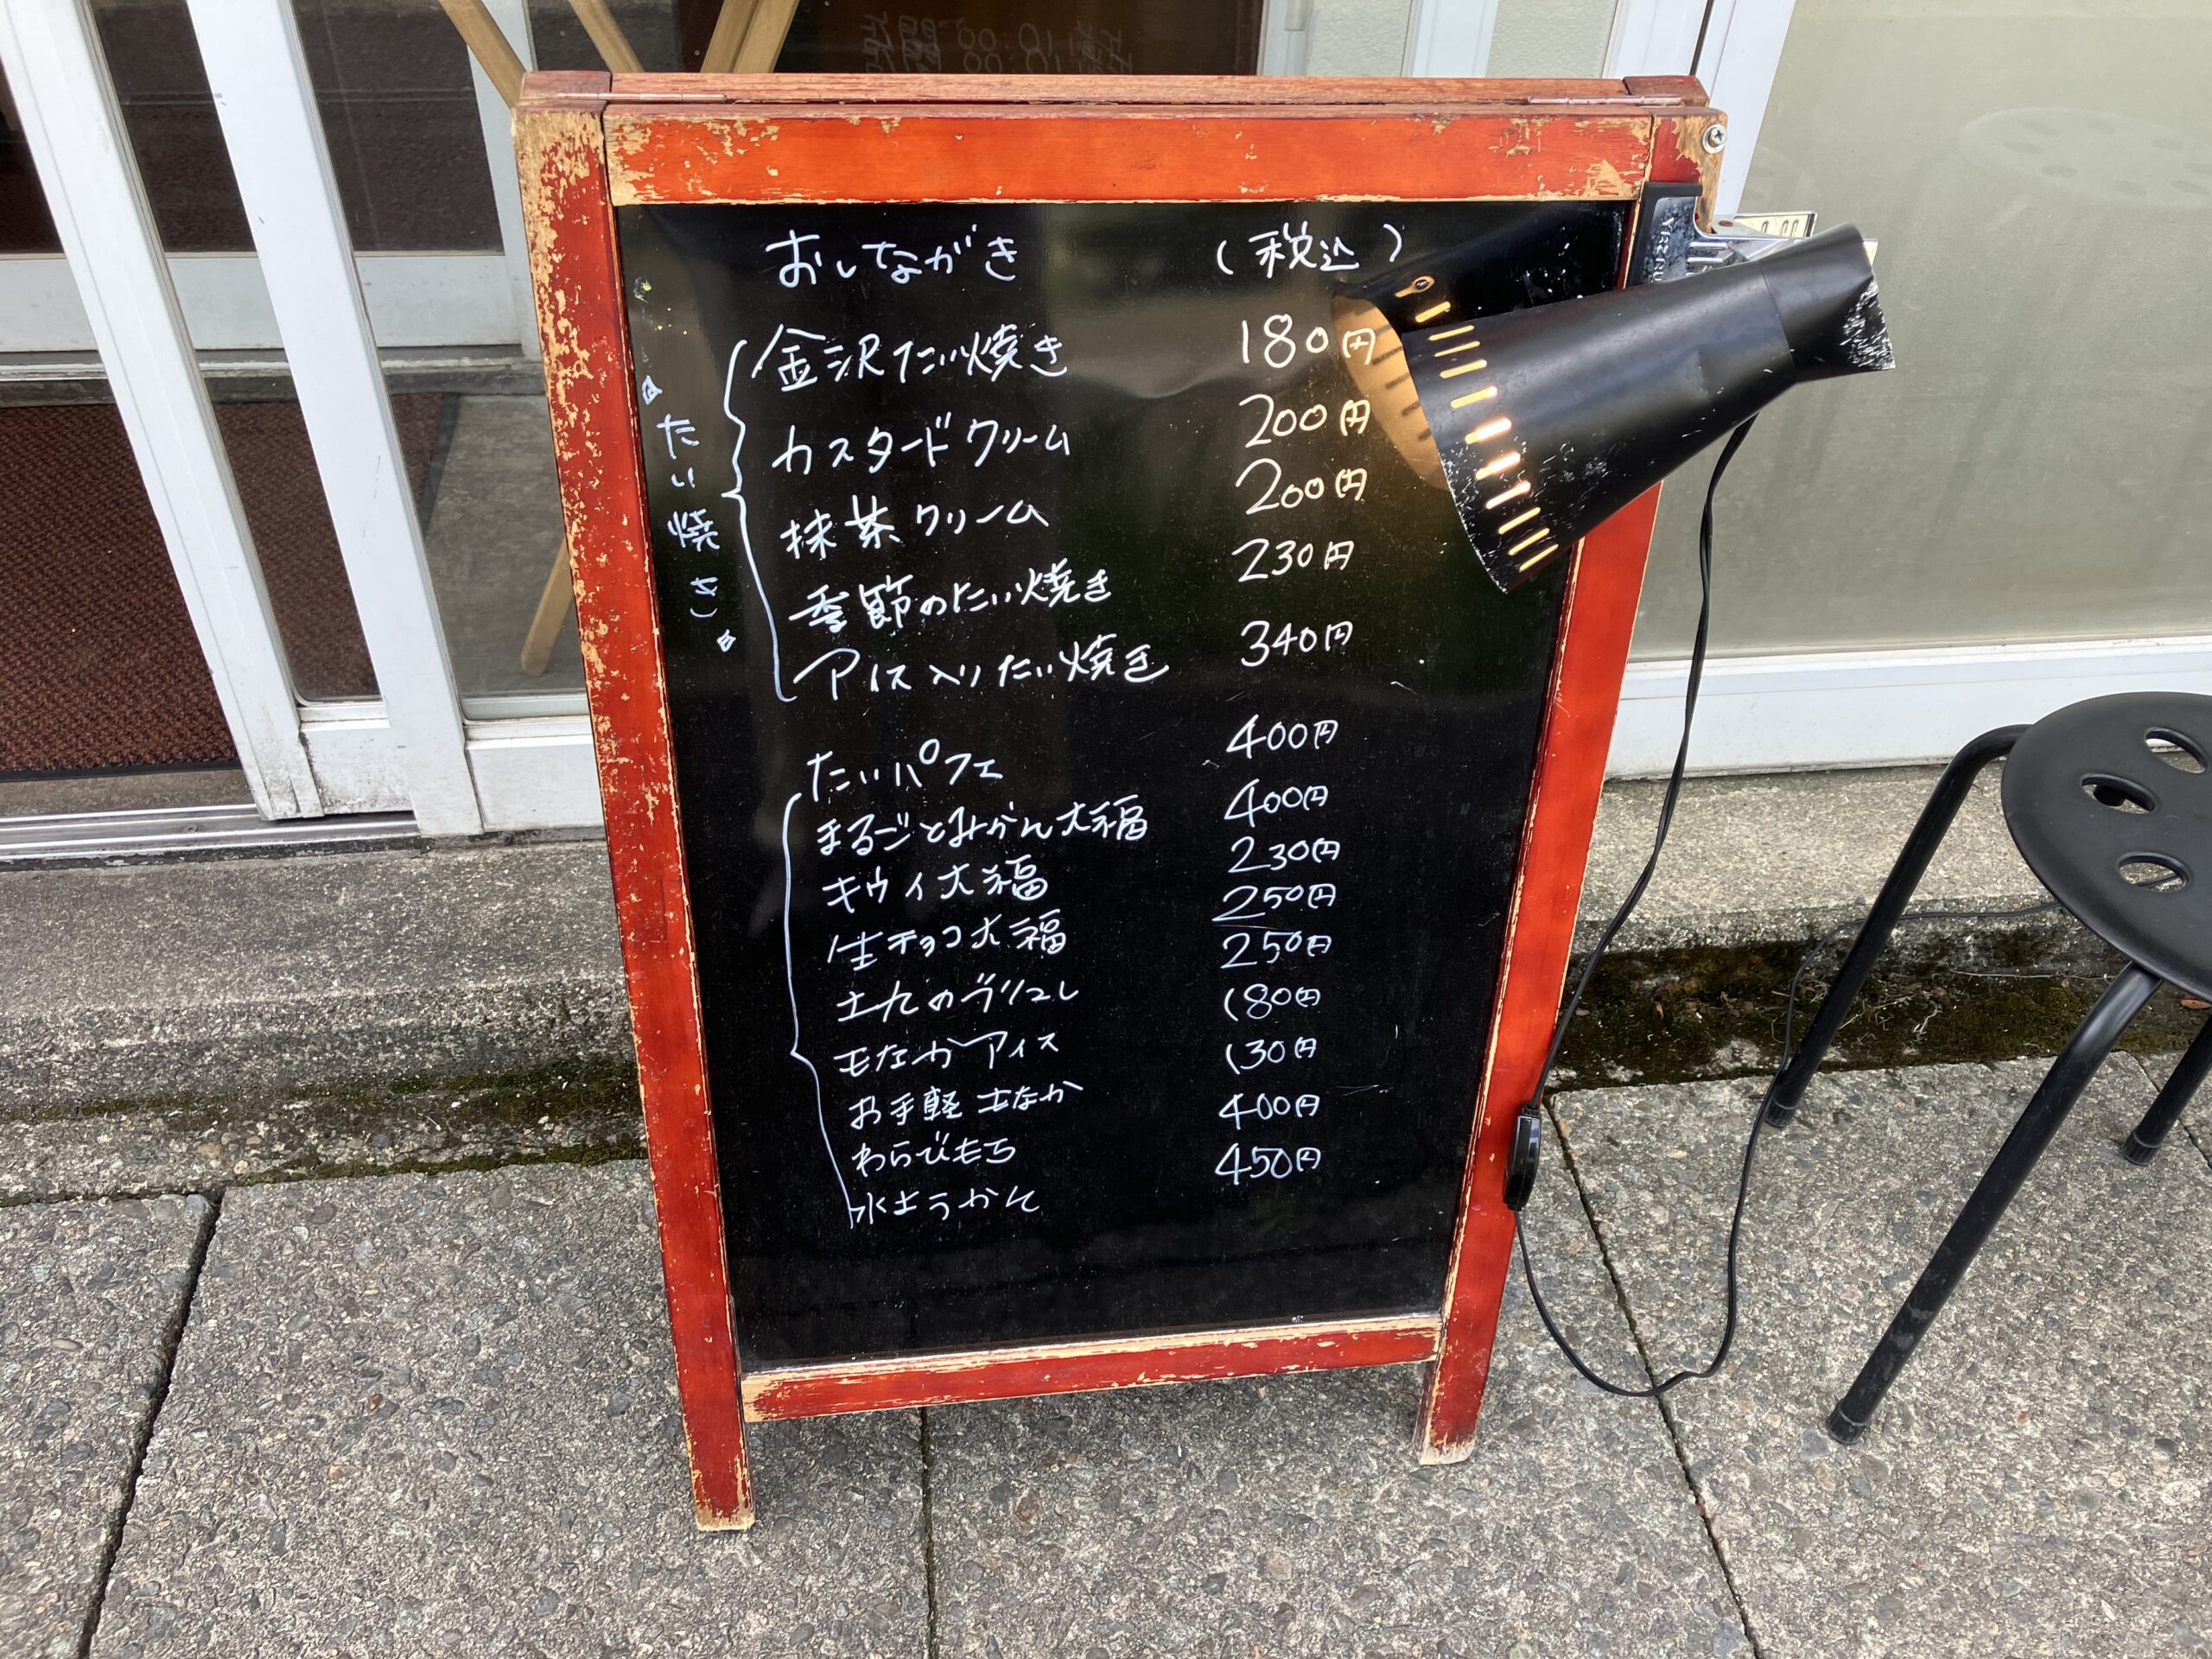 おしながき (税込)
たい焼き
金沢たい焼き 180円
カスタードクリーム 200円
抹茶クリーム 200円
季節のたい焼き 230円
アイス入りたい焼き 340円
たいパフェ 400円
まるごとみかん大福 400円
キウイ大福 230円
生チョコ大福 250円
のブリュレ 250円
もなかアイス 180円
お手軽もなか 130円
わらびもち 400円
水ようかん 450円